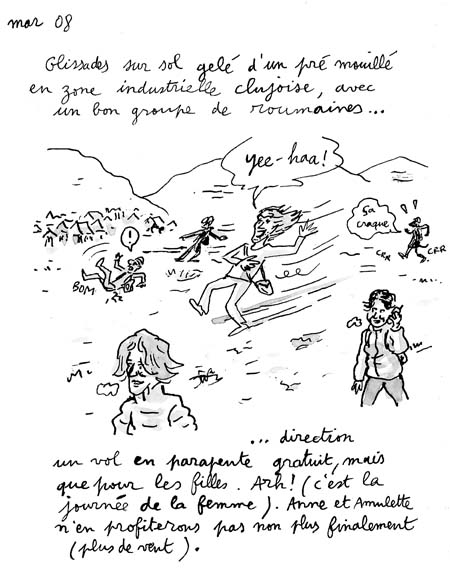 mar 08
Glissades sur sol gelé d'un pré mouillé
en zone industrielle clujoise, avec
un bon groupe de roumaines...
Yee-haa!
ça
craque
!
! !
BOM
CRR
CRR
... direction
un vol en parapente gratuit, mais
que pour les filles. Arh! (c'est la
journée de la femme). Anne et Amulette
n'en profiterons pas non plus finalement
(plus de vent).